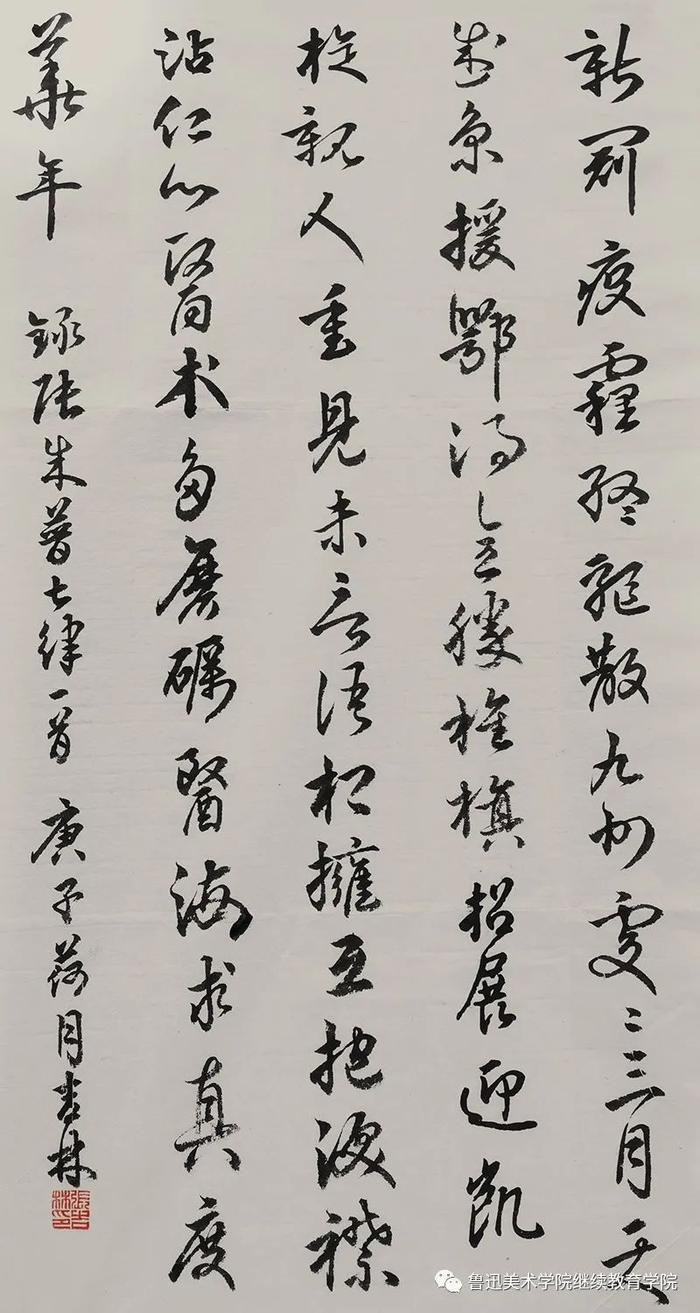 新冠疫霾終驅散九州處〻三月天
盛京援鄂得全勝旌旗招展迎凱
旋親人重見未言語相擁互抱淚襟
沾仁心醫术多磨礪醫海求真度
華年 錄張朱普七律一首 庚子荷月吉林
張吉林印
鲁迅美术学院继续教育学院